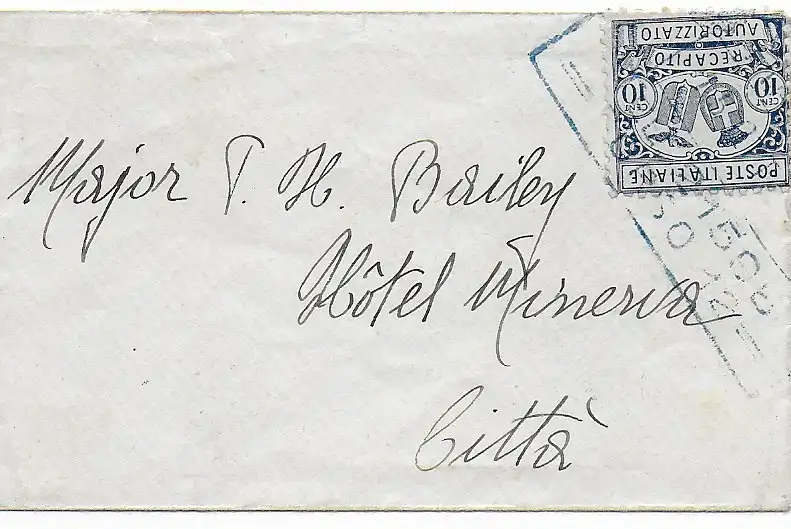 POSTE ITALIANE
CENT 10
CENT 10
RECAPITO
AUTORIZZATO
Major T. H. Bailey
Hôtel Minerva
Città